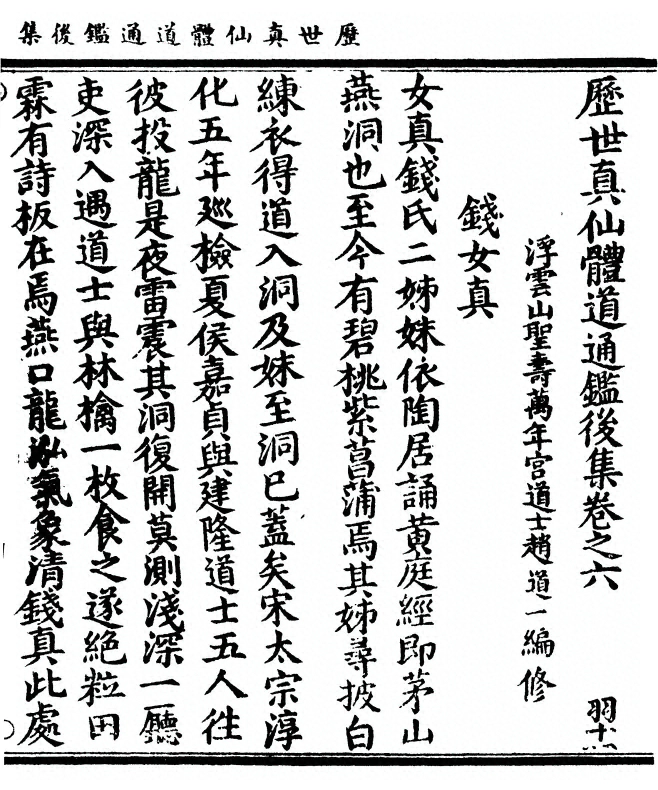 歷世真仙體道通鑑後集
歷世真仙體道通鑑後集卷之六
浮雲山聖壽萬年宮道士趙道一編修
錢女真
女真錢氏二姊妹依陶居誦黄庭經即茅山
燕洞也至今有碧桃紫菖蒲焉其姊尋披白
練衣得道入洞及妹至洞已蓋矣宋太宗淳
化五年廵檢夏侯嘉貞與建隆道士五人徃
彼投龍是夜雷震其洞復開莫測淺深一廳
吏深入遇道士與林檎一枚食之遂絕粒田
霖有詩板在焉燕口龍泓氣象清錢真此處